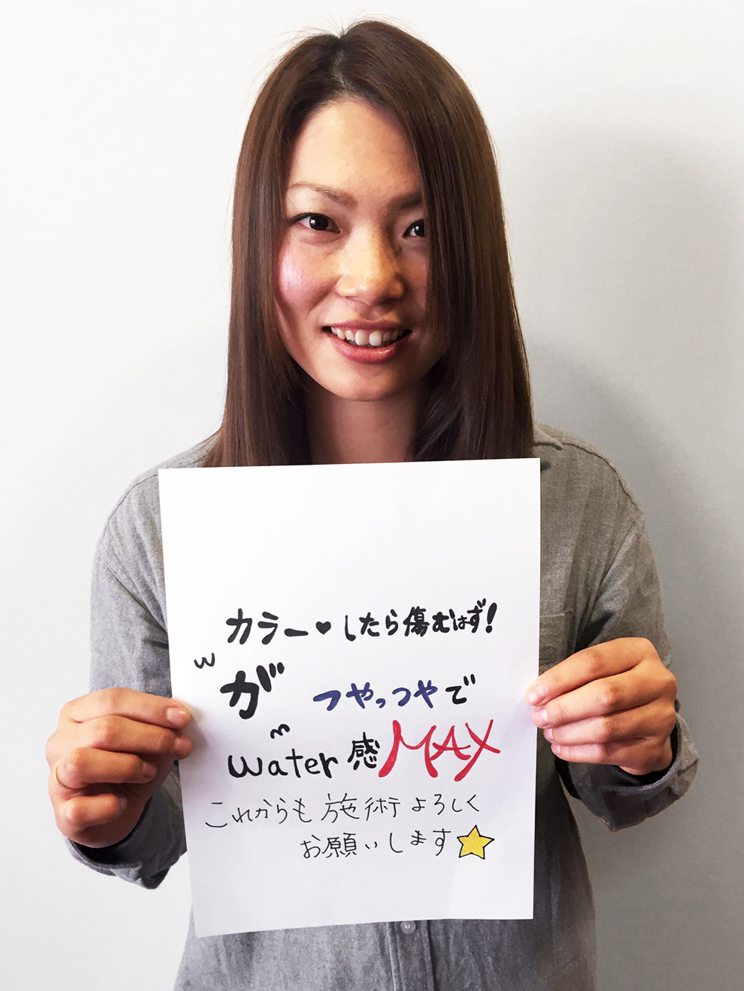 カラー♥したら傷むはず!
が つやっつやで
water感MAX
これからも施術よろしく
お願いします⭐